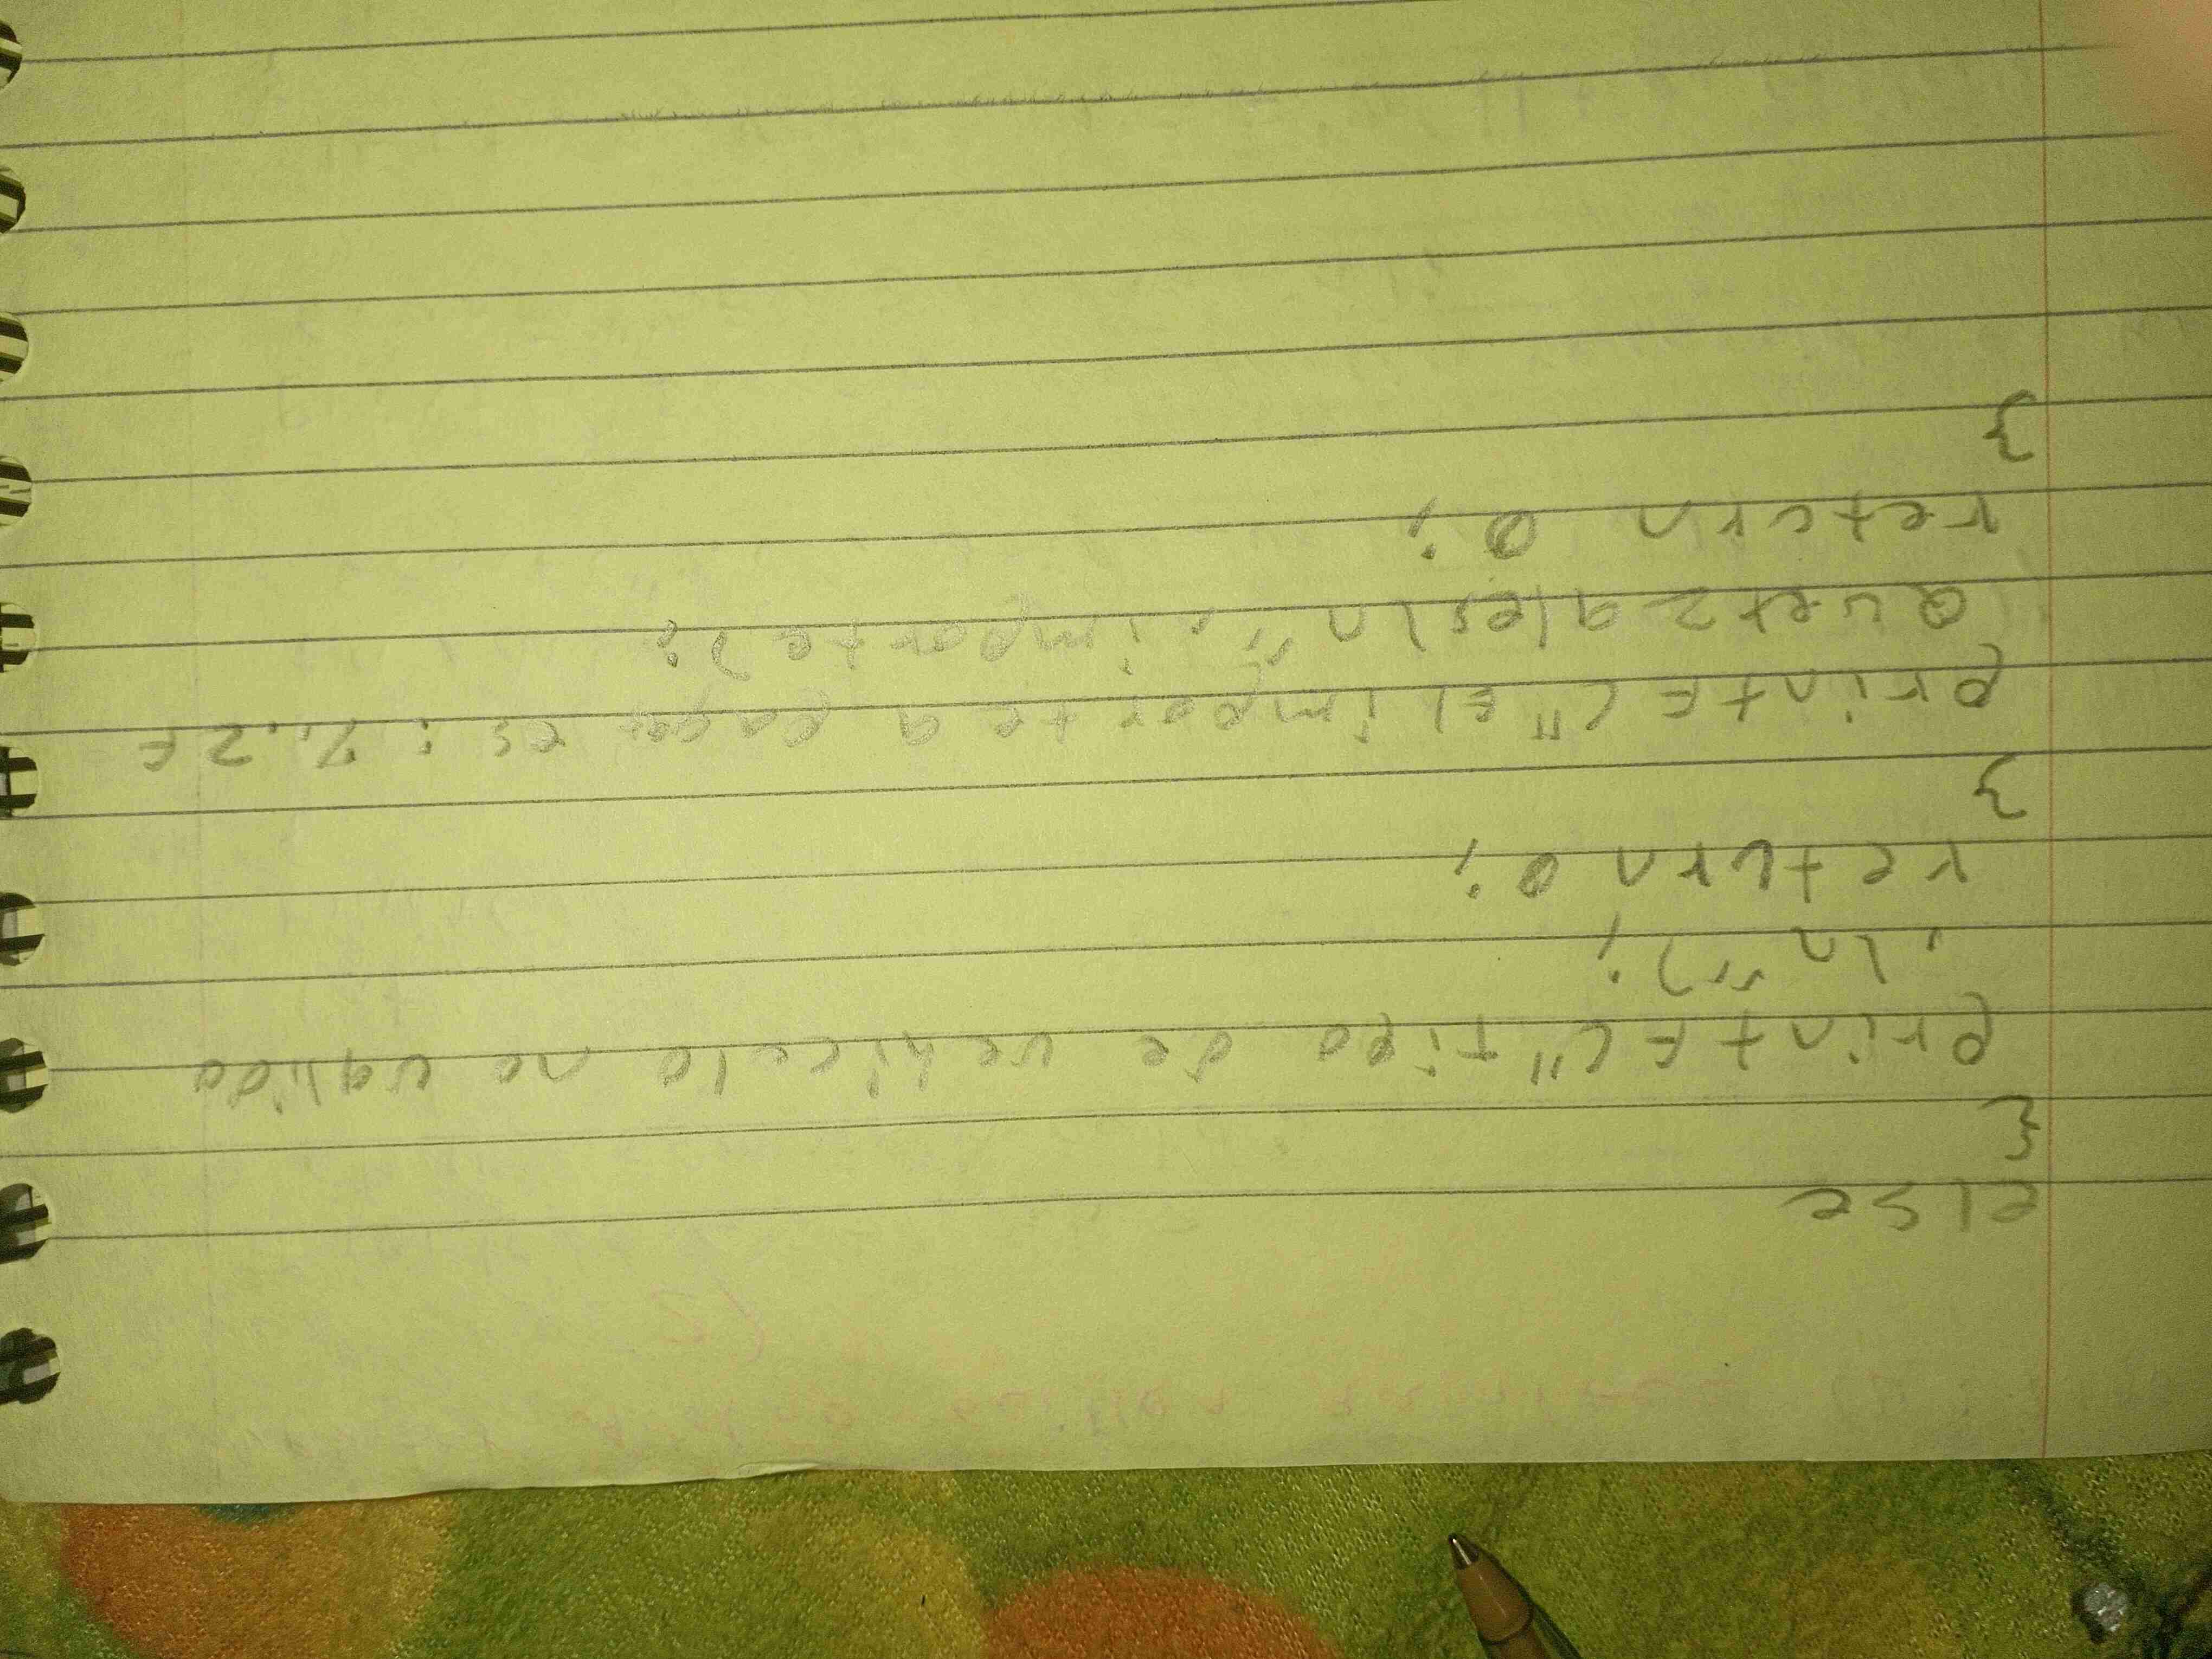 else
{
printf("tipo de vehiculo no valido
.\n");
return 0;
}
printf("El importe a pagar es: %.2f
Quetzales\n", importe);
return 0;
}